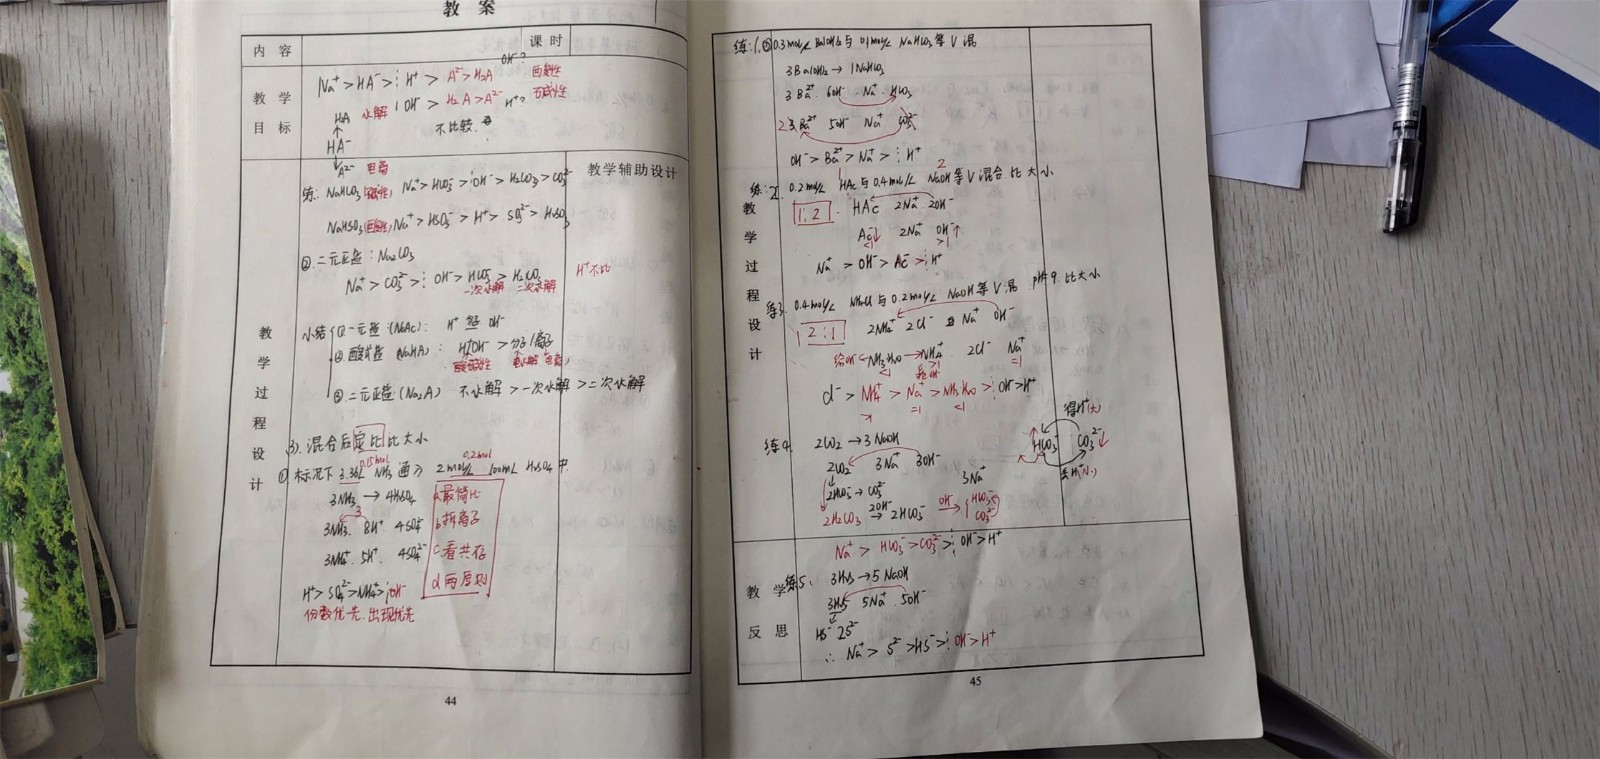 教 案
内 容
课 时
教 学 目 标
Na⁺ > HA⁻ > ¦ H⁺ > A²⁻ > H₂A OH⁻? 酸性
水解 ¦ OH⁻ > H₂A > A²⁻ H⁺? 碱性
不比较
H₂A
↑
HA⁻
↓
A²⁻ 电离
教学辅助设计
练: NaHCO₃(碱性) Na⁺ > HCO₃⁻ > ¦ OH⁻ > H₂CO₃ > CO₃²⁻
NaHSO₃(酸性) Na⁺ > HSO₃⁻ > H⁺ > SO₃²⁻ > H₂SO₃
②.二元正盐: Na₂CO₃
Na⁺ > CO₃²⁻ > ¦ OH⁻ > HCO₃⁻ > H₂CO₃ H⁺不比
一次水解 二次水解
教 学 过 程 设 计
小结 ①一元盐 (NaAc): H⁺ OH⁻
②酸式盐 (NaHA): H⁺/OH⁻ > 分子/离子
酸碱性 水解 电离
③.二元正盐 (Na₂A) 不水解 > 一次水解 > 二次水解
3). 混合后定比比大小
0.15mol 0.2mol
①标况下 3.36L NH₃ 通入 2mol/L 100mL H₂SO₄ 中.
3NH₃ → 4H₂SO₄
3
3NH₃ 8H⁺ 4SO₄²⁻
3NH₄⁺ 5H⁺ 4SO₄²⁻
H⁺ > SO₄²⁻ > NH₄⁺ > ¦ OH⁻
份数优先, 出现优先
a 最简比
b 拆离子
c 看共存
d 两原则
44
练:1.② 0.3mol/L Ba(OH)₂与 0.1mol/L NaHCO₃ 等V混
3Ba(OH)₂ → 1NaHCO₃
3Ba²⁺ 6OH⁻ Na⁺ HCO₃⁻
2 3Ba²⁺ 5OH⁻ Na⁺ CO₃²⁻
OH⁻ > Ba²⁺ > Na⁺ > ¦ H⁺
2
练:2. 0.2mol/L HAc 与 0.4mol/L NaOH 等V混合. 比大小
教 学 过 程 设 计
1:2 HAc 2Na⁺ 2OH⁻
Ac⁻↓ 2Na⁺ OH⁻↑
<1 >1
Na⁺ > OH⁻ > Ac⁻ > ¦ H⁺
练3. 0.4mol/L NH₄Cl 与 0.2mol/L NaOH 等V混 pH=9. 比大小
2:1 2NH₄⁺ 2Cl⁻ Na⁺ OH⁻
给OH⁻ ← NH₃·H₂O → NH₄⁺ 2Cl⁻ Na⁺
<1 >1 =1
Cl⁻ > NH₄⁺ > Na⁺ > NH₃·H₂O > ¦ OH⁻ > H⁺
>1 =1 <1
练4. 2CO₂ → 3NaOH
2CO₂ 3Na⁺ 3OH⁻
2HCO₃⁻ → CO₃²⁻ 3Na⁺
2H₂CO₃ 2OH⁻→ 2HCO₃⁻ OH⁻→ HCO₃⁻ CO₃²⁻
得H⁺(大)
HCO₃⁻ CO₃²⁻↓
丢H⁺(小)
Na⁺ > HCO₃⁻ > CO₃²⁻ > ¦ OH⁻ > H⁺
教 学 反 思
练5. 3H₂S → 5NaOH
3H₂S 5Na⁺ 5OH⁻
HS⁻ 2S²⁻
∴ Na⁺ > S²⁻ > HS⁻ > ¦ OH⁻ > H⁺
45